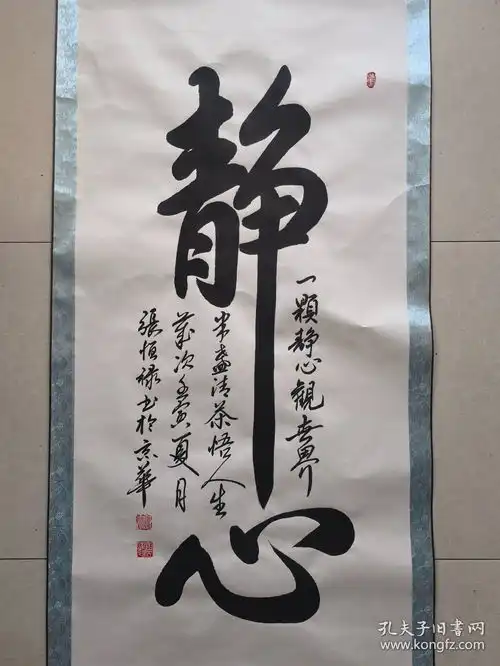 静心
一颗静心觀世界
半盏清茶悟人生
歲次壬寅夏月
張恒禄书於京華
孔夫子旧书网
www.kongfz.com